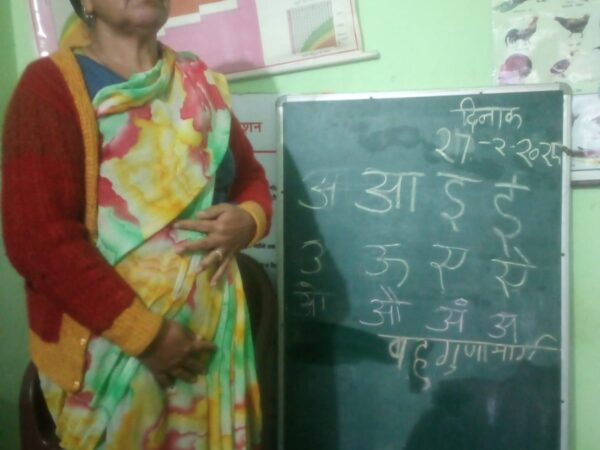 दिनाक
२७-२-२०२५
अ आ इ ई
उ ऊ ए ऐ
ओ औ अं अ
बहुगुणामार्ग